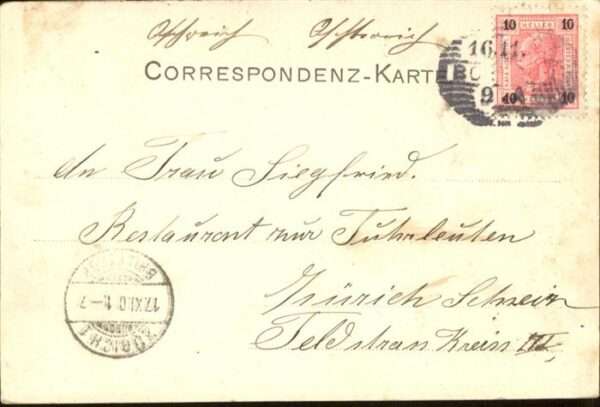 Oestreich Oestreich
CORRESPONDENZ-KARTE
10 HELLER 10
16.11.
BO
9
10 10
An Frau Siegfried.
Restaurant zur Fuhrleuten
Zürich Schweiz
Feldstrass Kreis III
BRIEFTRÄGER
17.XI.0 -7
ZÜRICH